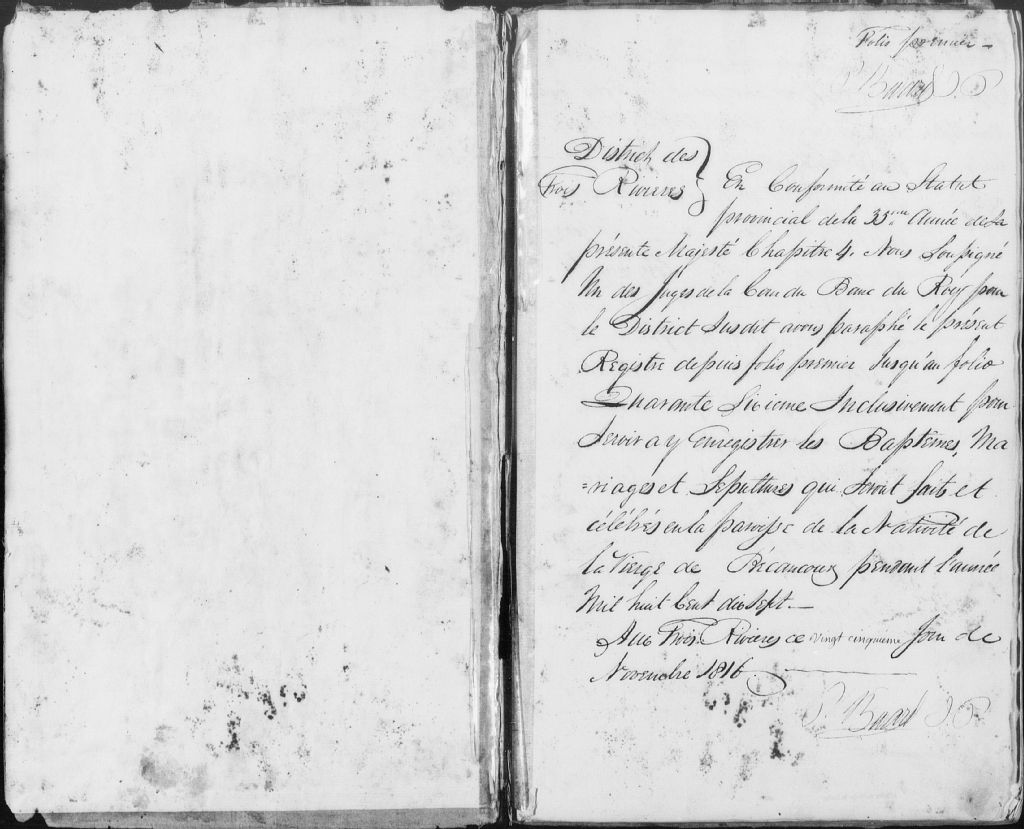 Folio premier -
P. Bedard J. P.
District des
Trois Rivieres } En Conformité au Statut
provincial de la 35me Année de Sa
présente Majesté Chapitre 4. Nous Soussigné
Un des Juges de la Cour du Banc du Roy pour
le District Susdit avons paraphé le présent
Registre depuis folio premier Jusqu'au folio
Quarante Sixieme Inclusivement pour
Servir a y Enregistrer les Baptêmes, Ma
=riages et Sepultures qui Seront faits et
célébrés en la paroisse de la Nativité de
la Vierge de Bécancour pendant l'année
Mil huit Cent dix Sept. —
Aux Trois Rivieres ce vingt cinquieme Jour de
Novembre 1816
P. Bedard J. P.